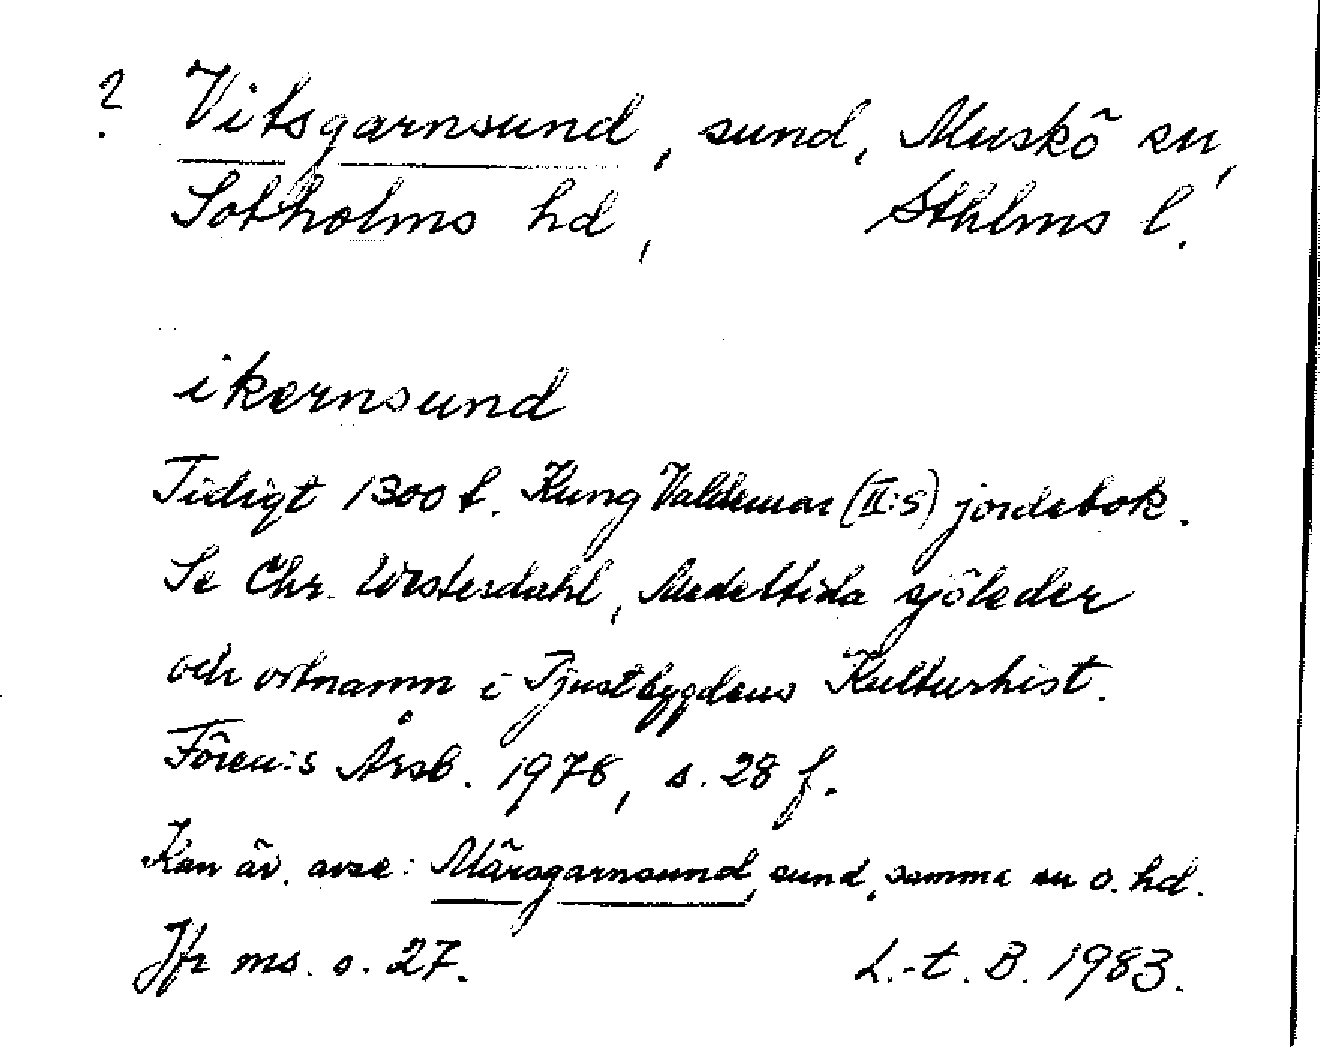 ? Vitsgarnsund, sund, Muskö sn,
Sotholms hd, Sthlms l.
ikernsund
Tidigt 1300 t. Kung Valdemar (II:s) jordebok.
Se Chr. Westerdahl, Medeltida sjöleder
och ortnamn i Tjustbygdens Kulturhist.
Fören:s Årsb. 1978, s. 28 f.
Kan äv. avse: Märsgarnsund, sund, samma sn o. hd.
Jfr ms. s. 27. L.-t. B. 1983.